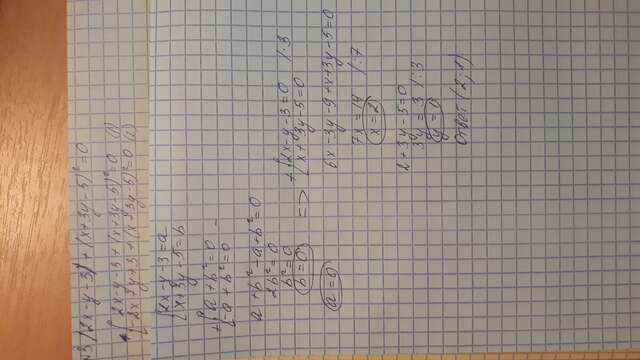 №3 |2x-y-3|+(x+3y-5)²=0
+ { 2x-y-3+(x+3y-5)²=0 (1)
{ -2x+y+3+(x+3y-5)²=0 (2)
{ 2x-y-3=a
{ x+3y-5=b
+ { a+b²=0
{ -a+b²=0
a+b²-a+b²=0
2b²=0
b²=0
b=0
a=0
=> + { 2x-y-3=0 |·3
{ x+3y-5=0
6x-3y-9+x+3y-5=0
7x=14 |:7
x=2
2+3y-5=0
3y=3 |:3
y=1
Ответ (2;1)